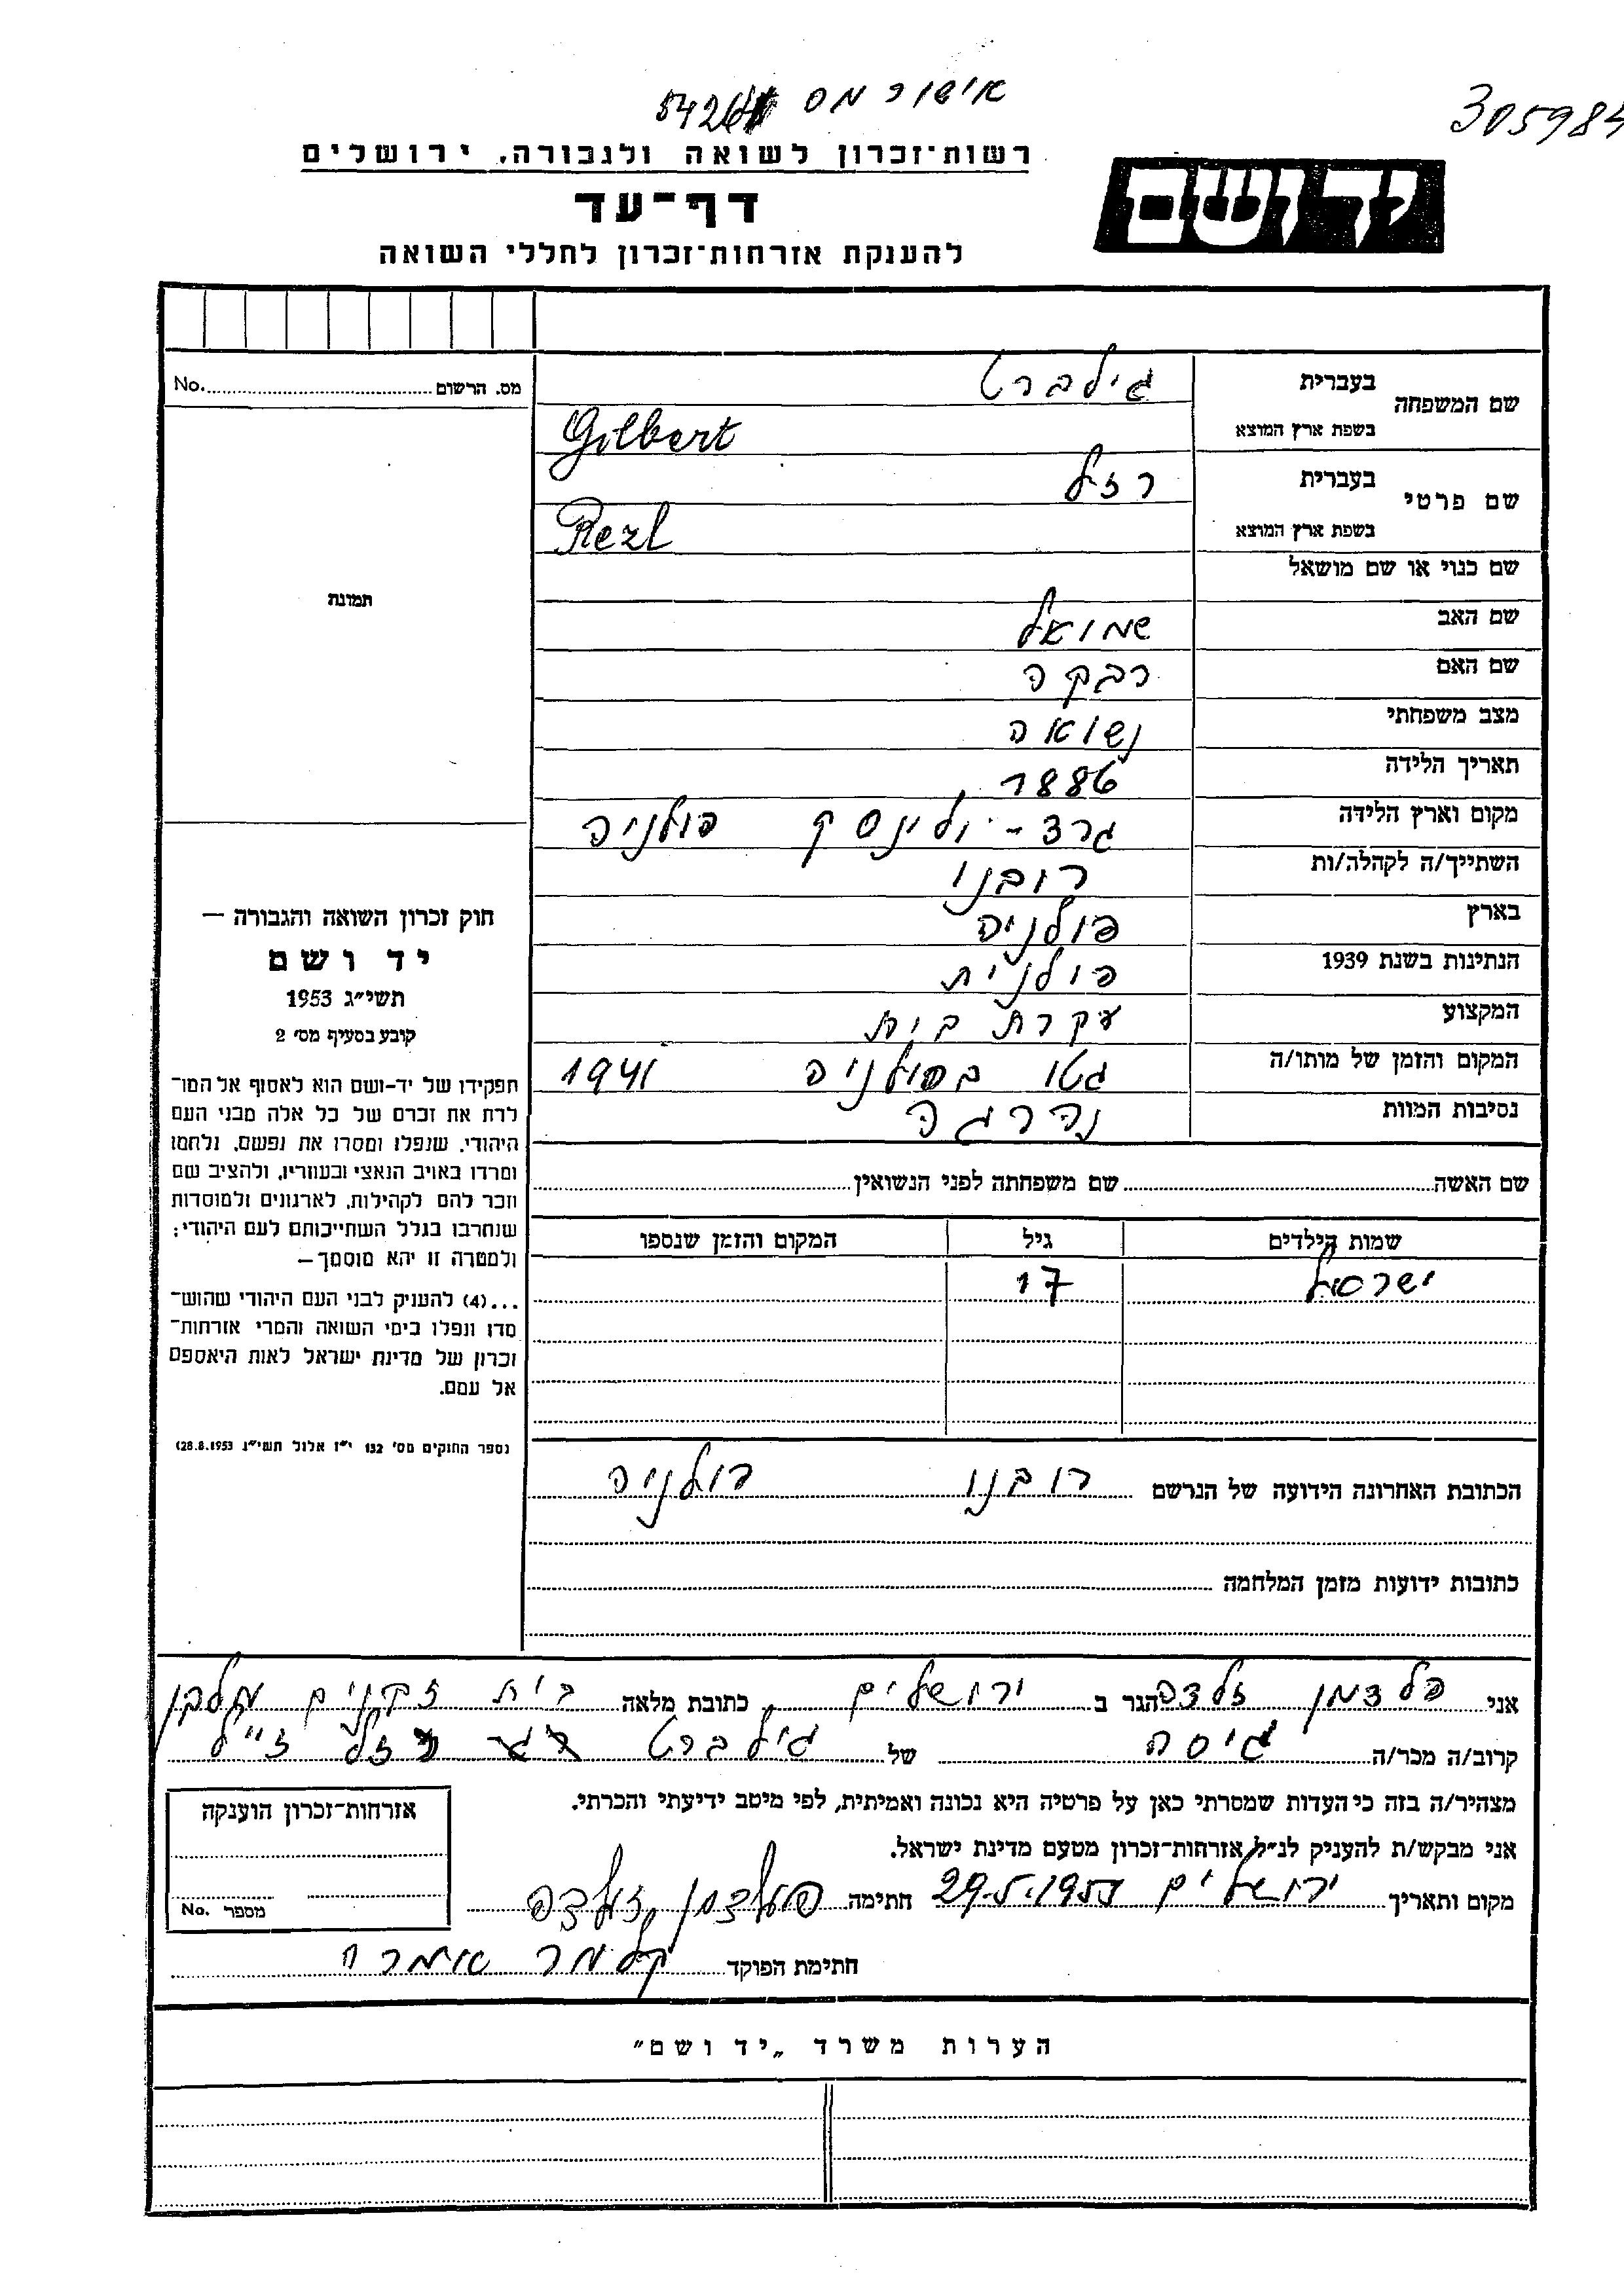 אישור מס
305984
רשות־זכרון לשואה ולגבורה, ירושלים
יד ושם
דף־עד
להענקת אזרחות־זכרון לחללי השואה
מס. הרשום No.
שם המשפחה
בעברית גילברט
בשפת ארץ המוצא Gilbert
שם פרטי
בעברית רזיל
בשפת ארץ המוצא Rezl
שם כנוי או שם מושאל
תמונה
שם האב שמואל
שם האם רבקה
מצב משפחתי נשואה
תאריך הלידה 1886
מקום וארץ הלידה פולניה
השתייך/ה לקהלה/ות רובנו
בארץ פולניה
הנתינות בשנת 1939 פולנית
המקצוע עקרת בית
המקום והזמן של מותו/ה גטו בפולניה 1941
נסיבות המוות נהרגה
חוק זכרון השואה והגבורה —
יד ושם
תשי״ג 1953
קובע בסעיף מס׳ 2
תפקידו של יד-ושם הוא לאסוף אל המו־
לדת את זכרם של כל אלה מבני העם
היהודי, שנפלו ומסרו את נפשם, נלחמו
ומרדו באויב הנאצי ובעוזריו, ולהציב שם
וזכר להם לקהילות, לארגונים ולמוסדות
שנחרבו בגלל השתייכותם לעם היהודי;
ולמטרה זו יהא מוסמך —
...(4) להעניק לבני העם היהודי שהוש־
מדו ונפלו בימי השואה והמרי אזרחות־
זכרון של מדינת ישראל לאות היאספם
אל עמם.
(ספר החוקים מס׳ 132 י״ז אלול תשי״ג 28.8.1953)
שם האשה שם משפחתה לפני הנשואין
שמות הילדים גיל המקום והזמן שנספו
ישראל 17
הכתובת האחרונה הידועה של הנרשם רובנו פולניה
כתובות ידועות מזמן המלחמה
אני פלדמן זלדה הגר ב ירושלים כתובת מלאה בית זקנים מלבן
קרוב/ה מכר/ה גיסה של גילברט רזל ז״ל
מצהיר/ה בזה כי העדות שמסרתי כאן על פרטיה היא נכונה ואמיתית, לפי מיטב ידיעתי והכרתי.
אני מבקש/ת להעניק לנ״ל אזרחות־זכרון מטעם מדינת ישראל.
מקום ותאריך ירושלים חתימה פלדמן זלדה
חתימת הפוקד קלמר
אזרחות־זכרון הוענקה
מספר No.
הערות משרד „יד ושם״